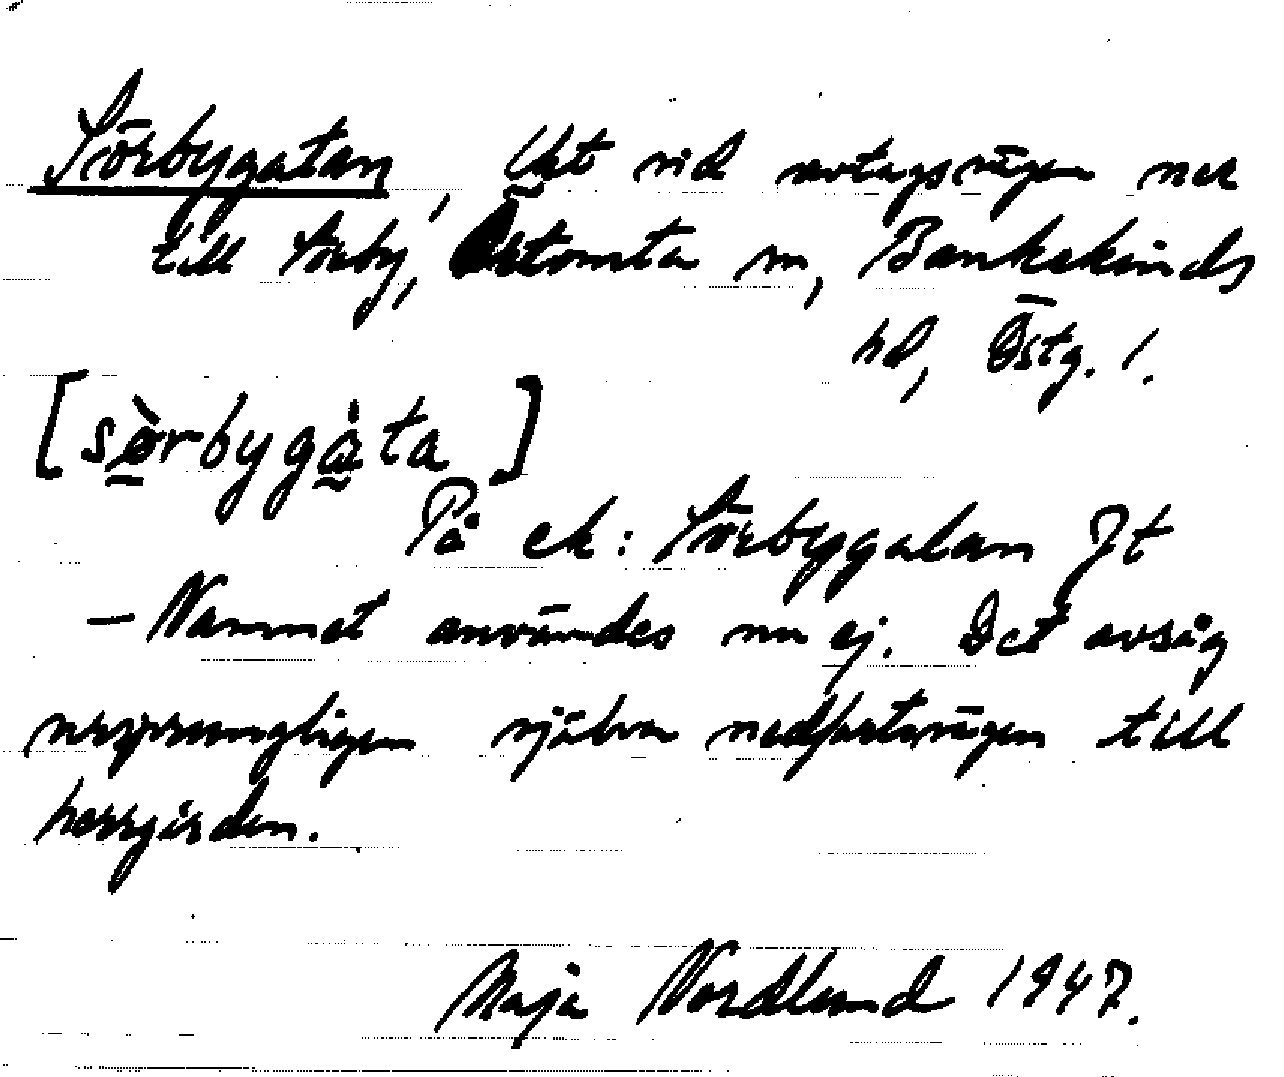 Sörbygatan, Lht vid avtagsvägen ner
till Sörby, Örtomta sn, Bankekinds
hd, Östg. l.
[sö̀rbygà̤ta]
På ek: Sörbygatan Jt
– Namnet användes nu ej. Det avsåg
ursprungligen själva nedfartsvägen till
herrgården.
Maja Nordlund 1947.